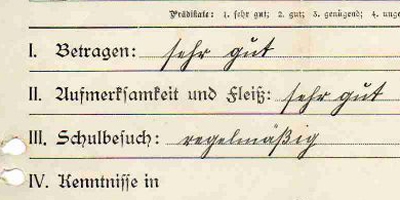 Prädikate: 1. sehr gut; 2. gut; 3. genügend; 4. unge
I. Betragen: sehr gut
II. Aufmerksamkeit und Fleiß: sehr gut
III. Schulbesuch: regelmäßig
IV. Kenntnisse in